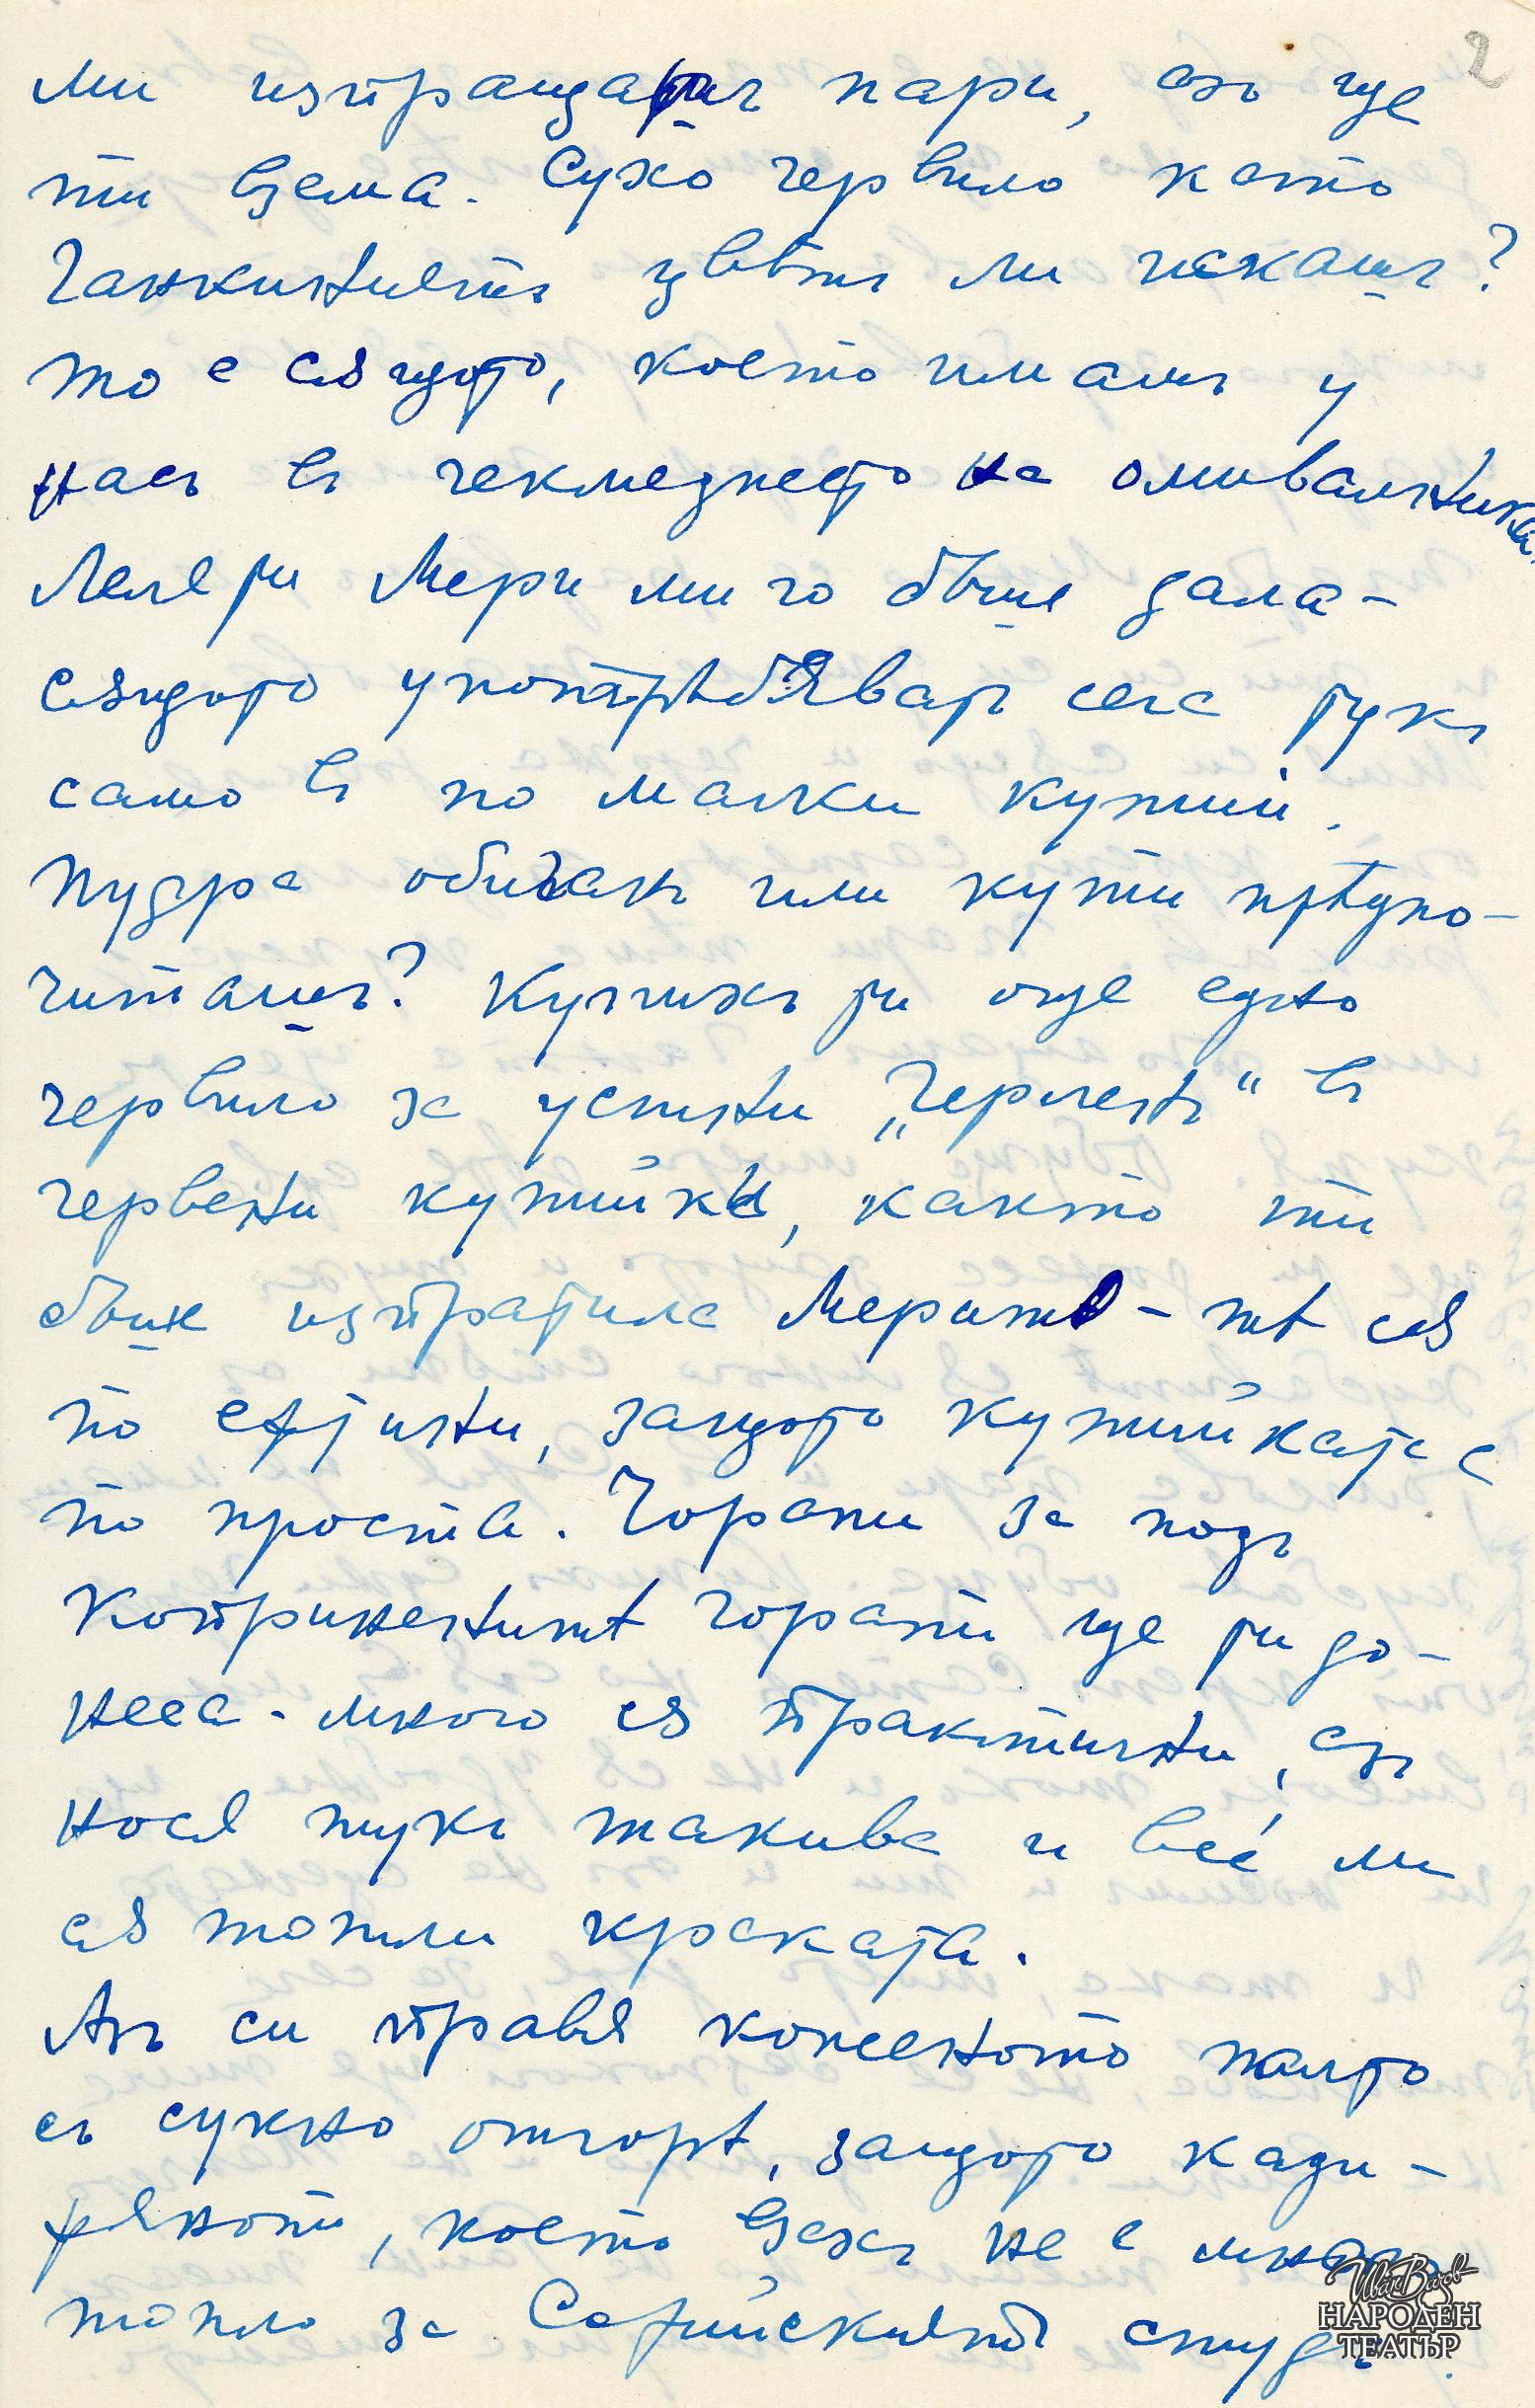 2
ми изпращашъ пари, азъ ще
ти взема. Сухо червило като
Ганкиниятъ цвѣтъ ли искашъ?
то е сѫщото, което имамъ у
насъ въ чекмеджето на омивалника.
Леля ти Мери ми го бѣше дала -
сѫщото употрѣбяватъ сега тукъ
само въ по малки кутии.
Пудра обичашъ или кути прѣдпо-
читашъ? Купихъ ти още едно
червило за устни „Герлен" въ
червени кутийки, както ти
бѣше изпратила Мери - тѣ сѫ
по ефтини, защото кутийката е
по проста. Чорапи за подъ
копринените чорапи ще ти до-
неса - много сѫ практични, азъ
нося тукъ такива и все ми
сѫ топли краката.
Азъ си правя коженото палто
съ сукно отгорѣ, защото кади-
фяното, което взехъ не е много
топло за Софийскиятъ студъ.
Иван Вазов
НАРОДЕН
ТЕАТЪР